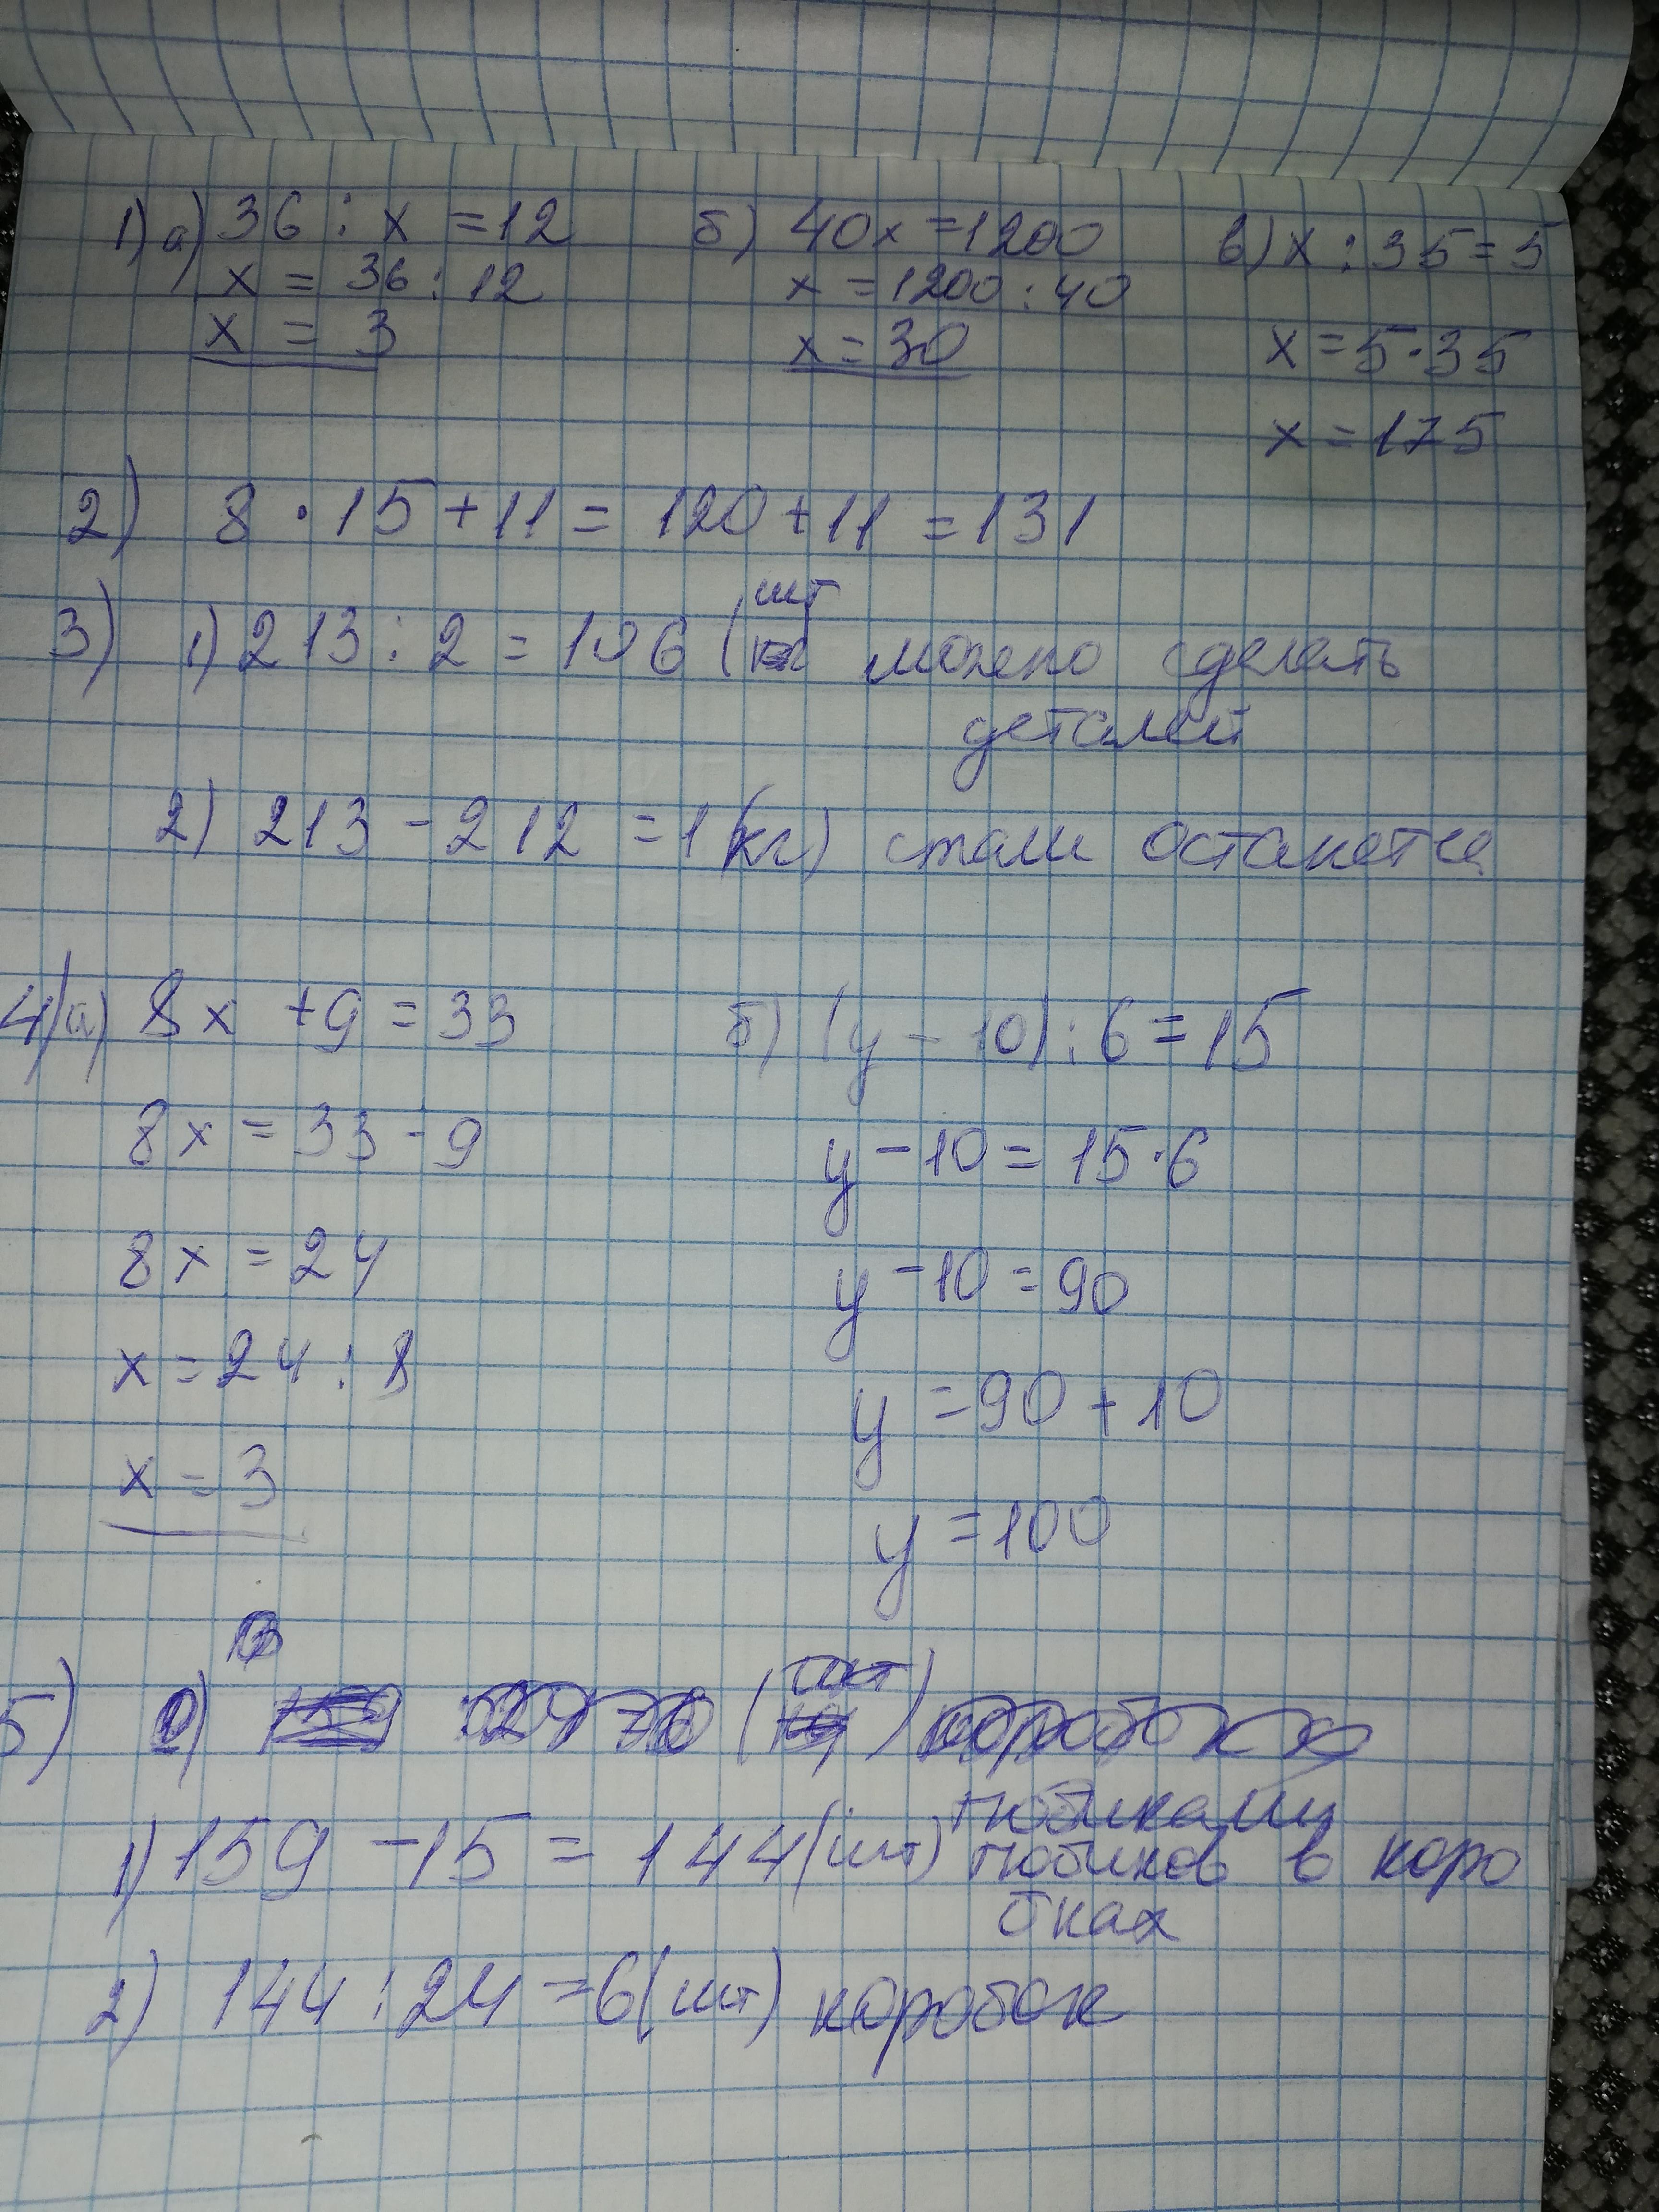 1) а) 36 : x = 12 б) 40x = 1200 в) x : 35 = 5
x = 36 : 12 x = 1200 : 40
x = 3 x = 30 x = 5 · 35
x = 175
2) 8 · 15 + 11 = 120 + 11 = 131
3) 1) 213 : 2 = 106 (шт можно сделать
деталей
2) 213 - 212 = 1 (кг) стали останется
4) а) 8x + 9 = 33 б) (y - 10) : 6 = 15
8x = 33 - 9 y - 10 = 15 · 6
8x = 24 y - 10 = 90
x = 24 : 8 y = 90 + 10
x = 3 y = 100
5)
1) 159 - 15 = 144 (шт) тюбиков в коро
бках
2) 144 : 24 = 6 (шт) коробок